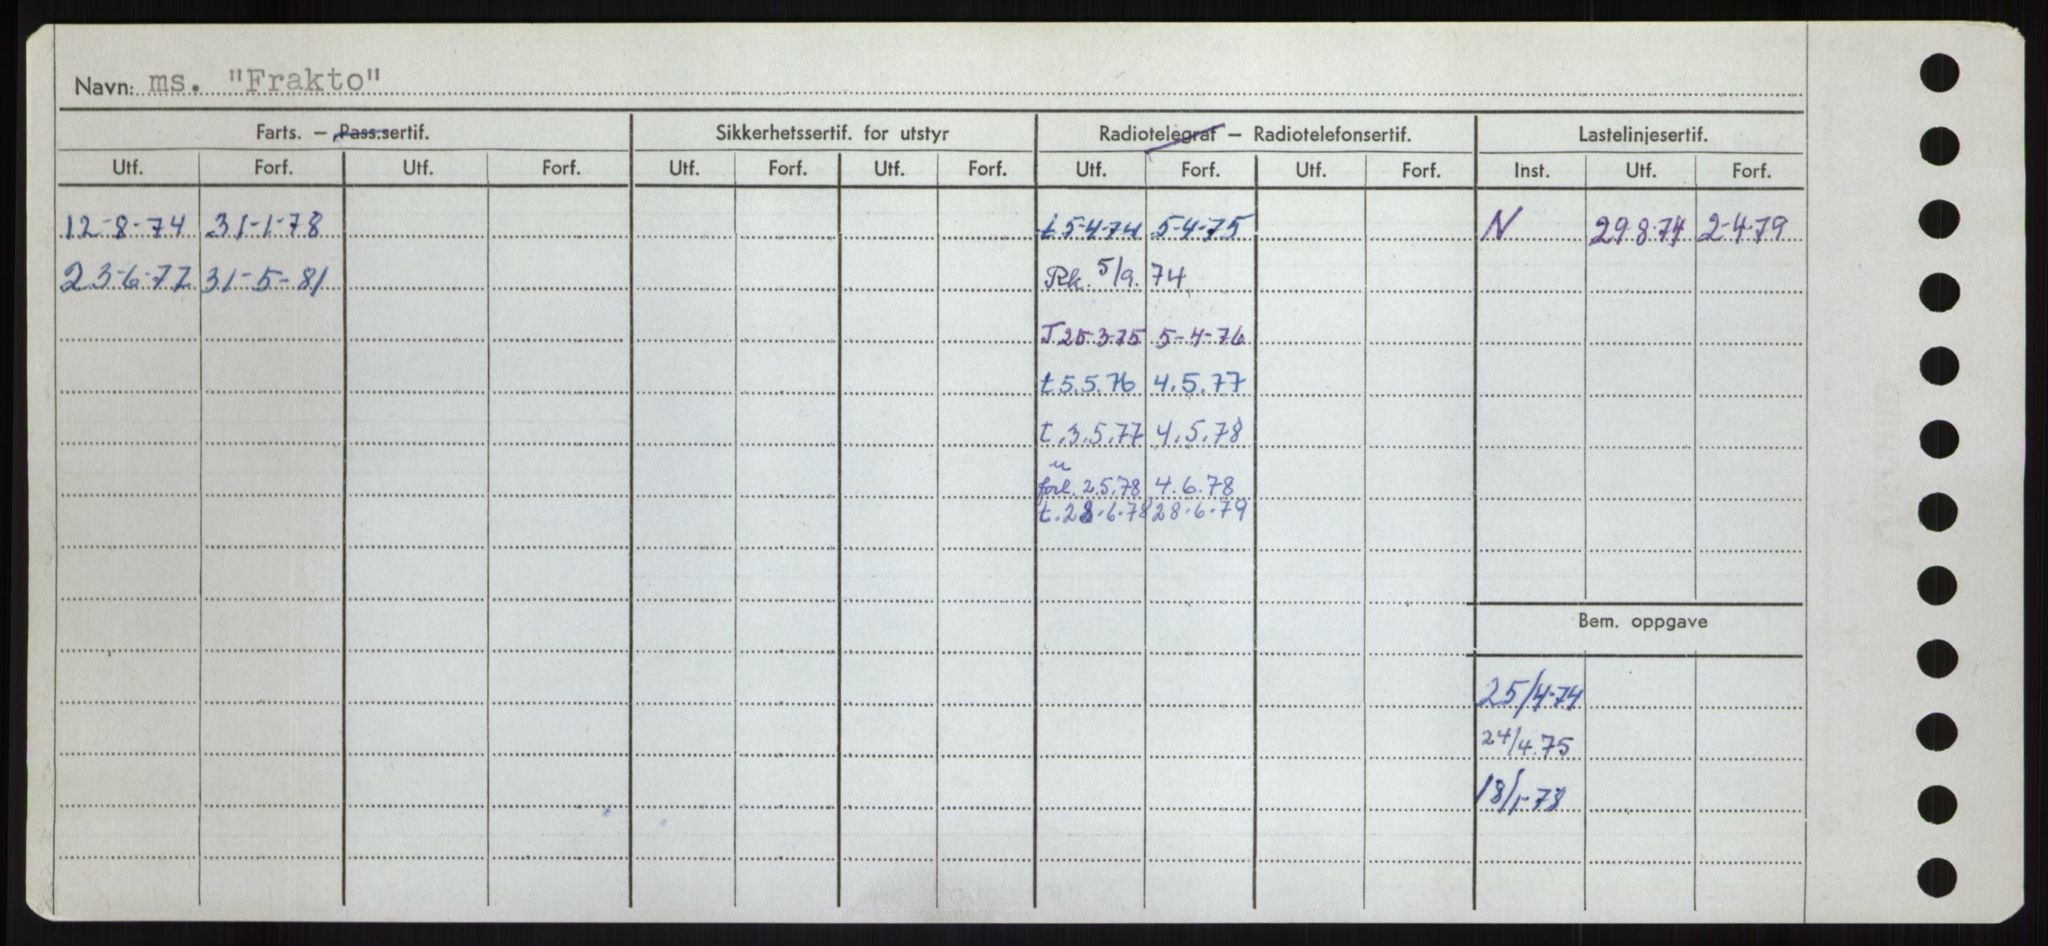 Navn: ms. "Frakto"
Farts. – Pass.sertif. Sikkerhetssertif. for utstyr Radiotelegraf – Radiotelefonsertif. Lastelinjesertif.
Utf. Forf. Utf. Forf. Utf. Forf. Utf. Forf. Utf. Forf. Utf. Forf. Inst. Utf. Forf.
12-8-74 31-1-78 t 5-4-74 5-4-75 N 29.8.74 2-4-79
23-6-77 31-5-81 Rk. 5/9. 74
T 25.3.75 5-4-76
t 5.5.76 4.5.77
t.3.5.77 4.5.78
u
forl. 2.5.78 4.6.78
t.28.6.78 28.6.79
Bem. oppgave
25/4-74
24/4.75
18/1-78